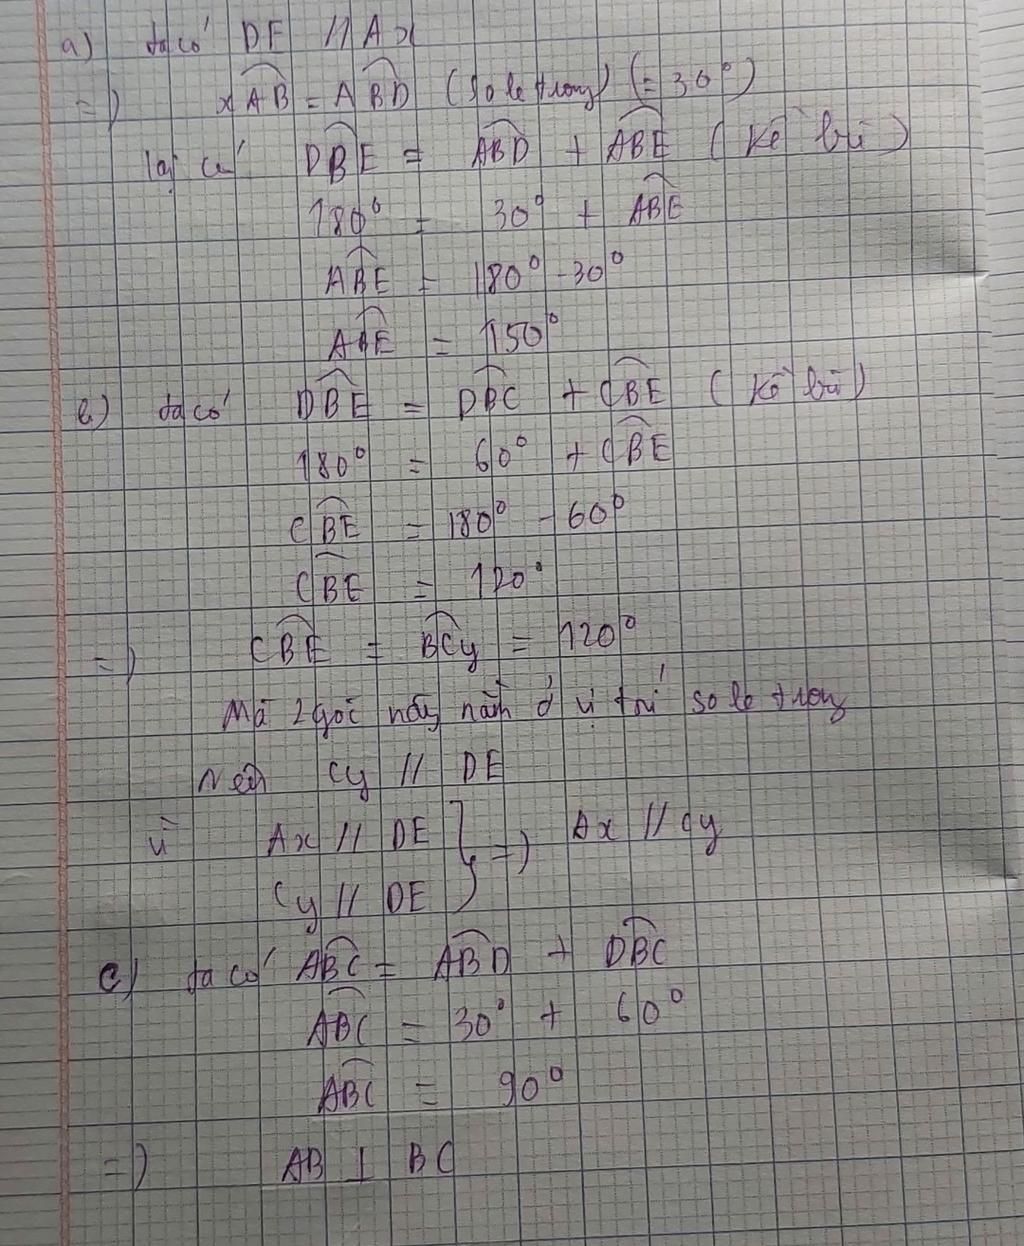 a) ta có DE // Ax
=) xAB = ABD (so le trong) (= 30°)
lại có DBE = ABD + ABE (kề bù)
180° = 30° + ABE
ABE = 180° - 30°
ABE = 150°
b) ta có DBE = DBC + CBE (kề bù)
180° = 60° + CBE
CBE = 180° - 60°
CBE = 120°
=) CBE = BCy = 120°
Mà 2 góc này nằm ở vị trí so le trong
Nên Cy // DE
vì Ax // DE } =) Ax // Cy
Cy // DE
c) ta có ABC = ABD + DBC
ABC = 30° + 60°
ABC = 90°
=) AB ⊥ BC